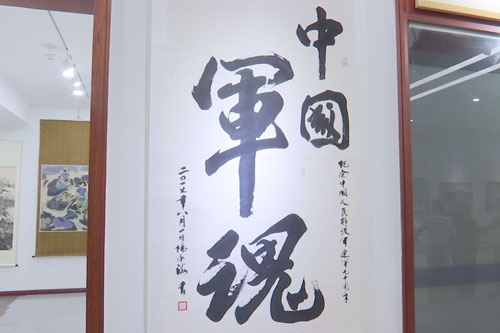 中國
軍魂
紀念中國人民解放軍建軍九十周年
二〇一七年八月一日